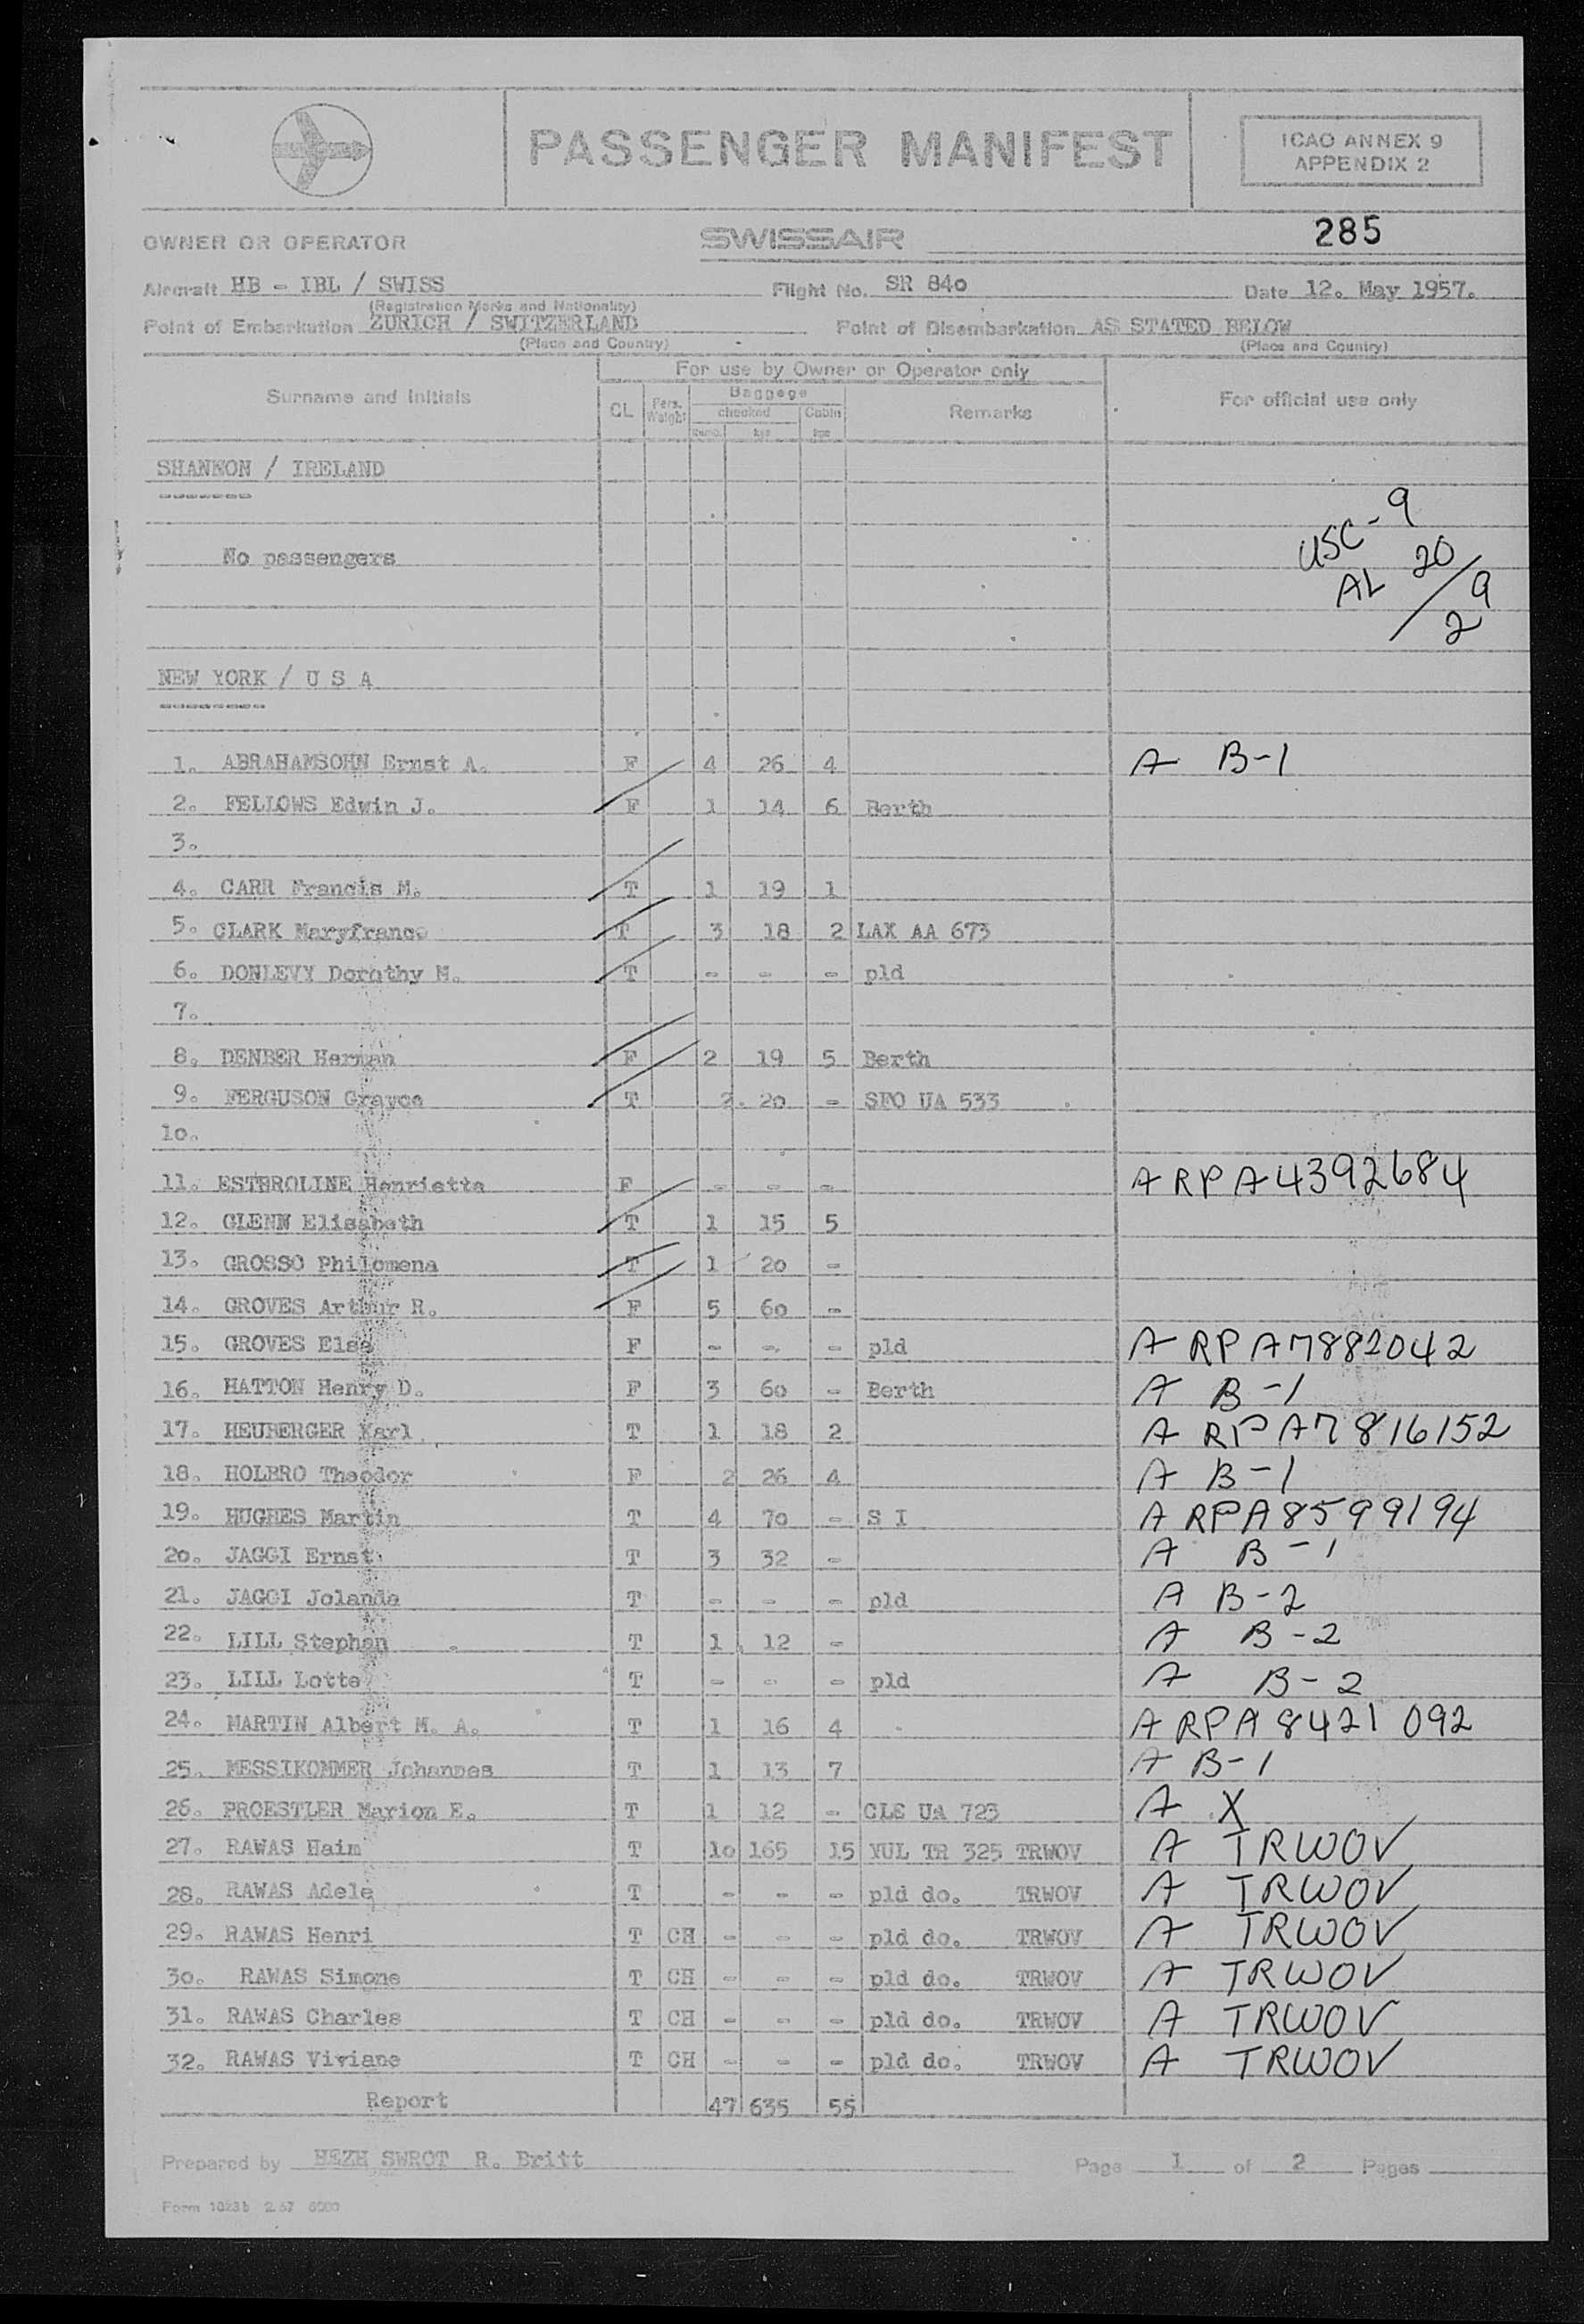 PASSENGER MANIFEST
ICAO ANNEX 9
APPENDIX 2
OWNER OR OPERATOR SWISSAIR 285
Aircraft HB - IBL / SWISS Flight No. SR 84o Date 12. May 1957.
(Registration Marks and Nationality)
Point of Embarkation ZURICH / SWITZERLAND Point of Disembarkation AS STATED BELOW
(Place and Country) (Place and Country)
For use by Owner or Operator only
Surname and Initials CL Pers. Weight Baggage checked kgs Cabin kgs Remarks For official use only
SHANNON / IRELAND
USC-9
No passengers
AL 20/9
29
NEW YORK / U S A
1. ABRAHAMSOHN Ernst A. F 4 26 4 A B-1
2. FELLOWS Edwin J. F 1 14 6 Berth
3.
4. CARR Francis M. T 1 19 1
5. CLARK Maryfrance T 3 18 2 LAX AA 673
6. DONLEVY Dorothy M. T - - - pld
7.
8. DENBER Herman F 2 19 5 Berth
9. FERGUSON Grayce T 2. 2o - SFO UA 533
1o.
11. ESTBROLINE Henriette F - - - A RPA4392684
12. GLENN Elisabeth T 1 15 5
13. GROSSO Philomena T 1 2o -
14. GROVES Arthur R. F 5 6o -
15. GROVES Else F - - - pld A RPA7882042
16. HATTON Henry D. F 3 6o - Berth A B-1
17. HEUBERGER Karl T 1 18 2 A RPA7816152
18. HOLBRO Theodor F 2 26 4 A B-1
19. HUGHES Martin T 4 7o - S I A RPA8599194
2o. JAGGI Ernst T 3 32 - A B-1
21. JAGGI Jolanda T - - - pld A B-2
22. LILL Stephan T 1 12 - A B-2
23. LILL Lotte T - - - pld A B-2
24. MARTIN Albert M. A. T 1 16 4 A RPA8421092
25. MESSIKOMMER Johannes T 1 13 7 A B-1
26. PROESTLER Marion E. T 1 12 - CLE UA 723 A X
27. RAWAS Haim T 1o 165 15 YUL TR 325 TRWOV A TRWOV
28. RAWAS Adele T - - - pld do. TRWOV A TRWOV
29. RAWAS Henri T CH - - - pld do. TRWOV A TRWOV
3o. RAWAS Simone T CH - - - pld do. TRWOV A TRWOV
31. RAWAS Charles T CH - - - pld do. TRWOV A TRWOV
32. RAWAS Viviane T CH - - - pld do. TRWOV A TRWOV
Report 47 635 55
Prepared by HEZH SWROT R. Britt Page 1 of 2 Pages
Form 1023b 2.57